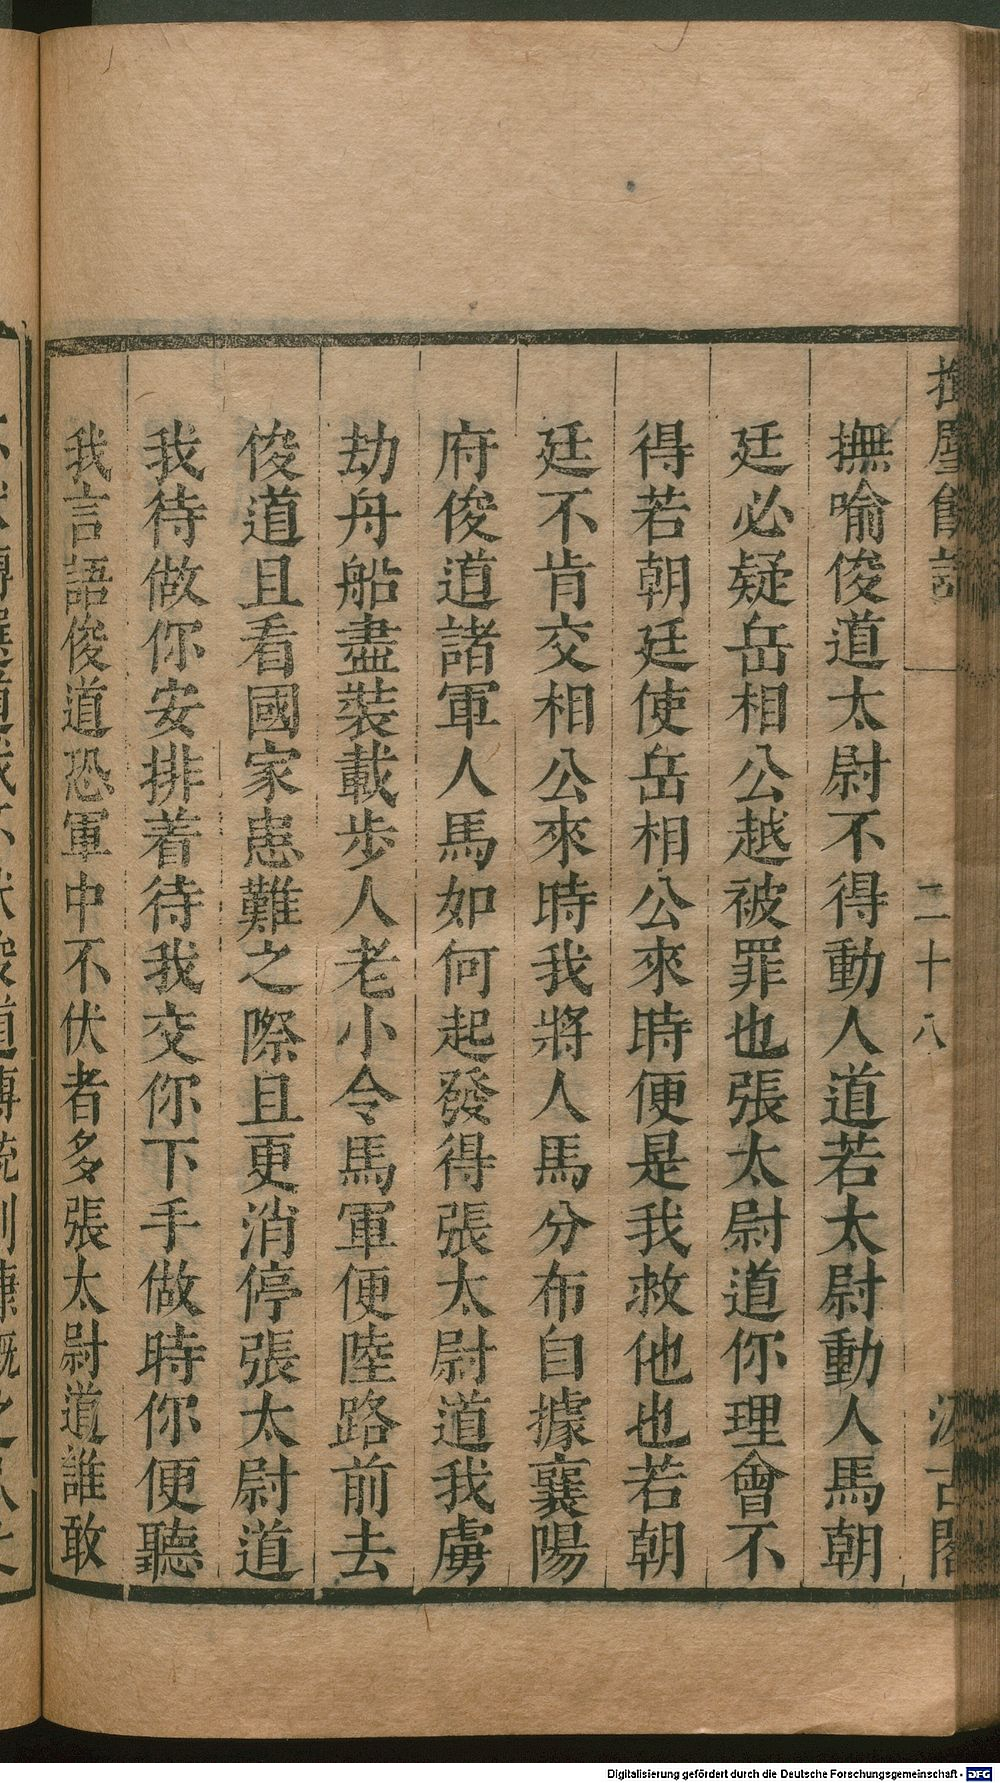 揮麈餘話
二十八
汲古閣
撫喻俊道太尉不得動人道若太尉動人馬朝
廷必疑岳相公越被罪也張太尉道你理會不
得若朝廷使岳相公來時便是我救他也若朝
廷不肯交相公來時我將人馬分布自據襄陽
府俊道諸軍人馬如何起發得張太尉道我虜
劫舟船盡裝載步人老小令馬軍便陸路前去
俊道且看國家患難之際且更消停張太尉道
我待做你安排着待我交你下手做時你便聽
我言語俊道恐軍中不伏者多張太尉道誰敢
Digitalisierung gefördert durch die Deutsche Forschungsgemeinschaft - DFG